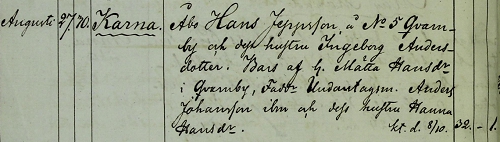 Augusti 27/70. Karna. Åbo Hans Jeppsson å No 5 Qvarn-
by och dess hustru Ingeborg Anders-
dotter. Bars af h. Mätta Hansdr
i Qvarnby, Faddr Undantagsm. Anders
Johansson ibm och dess hustru Hanna
Hansdr. kt. d. 8/10. 32. - 1.